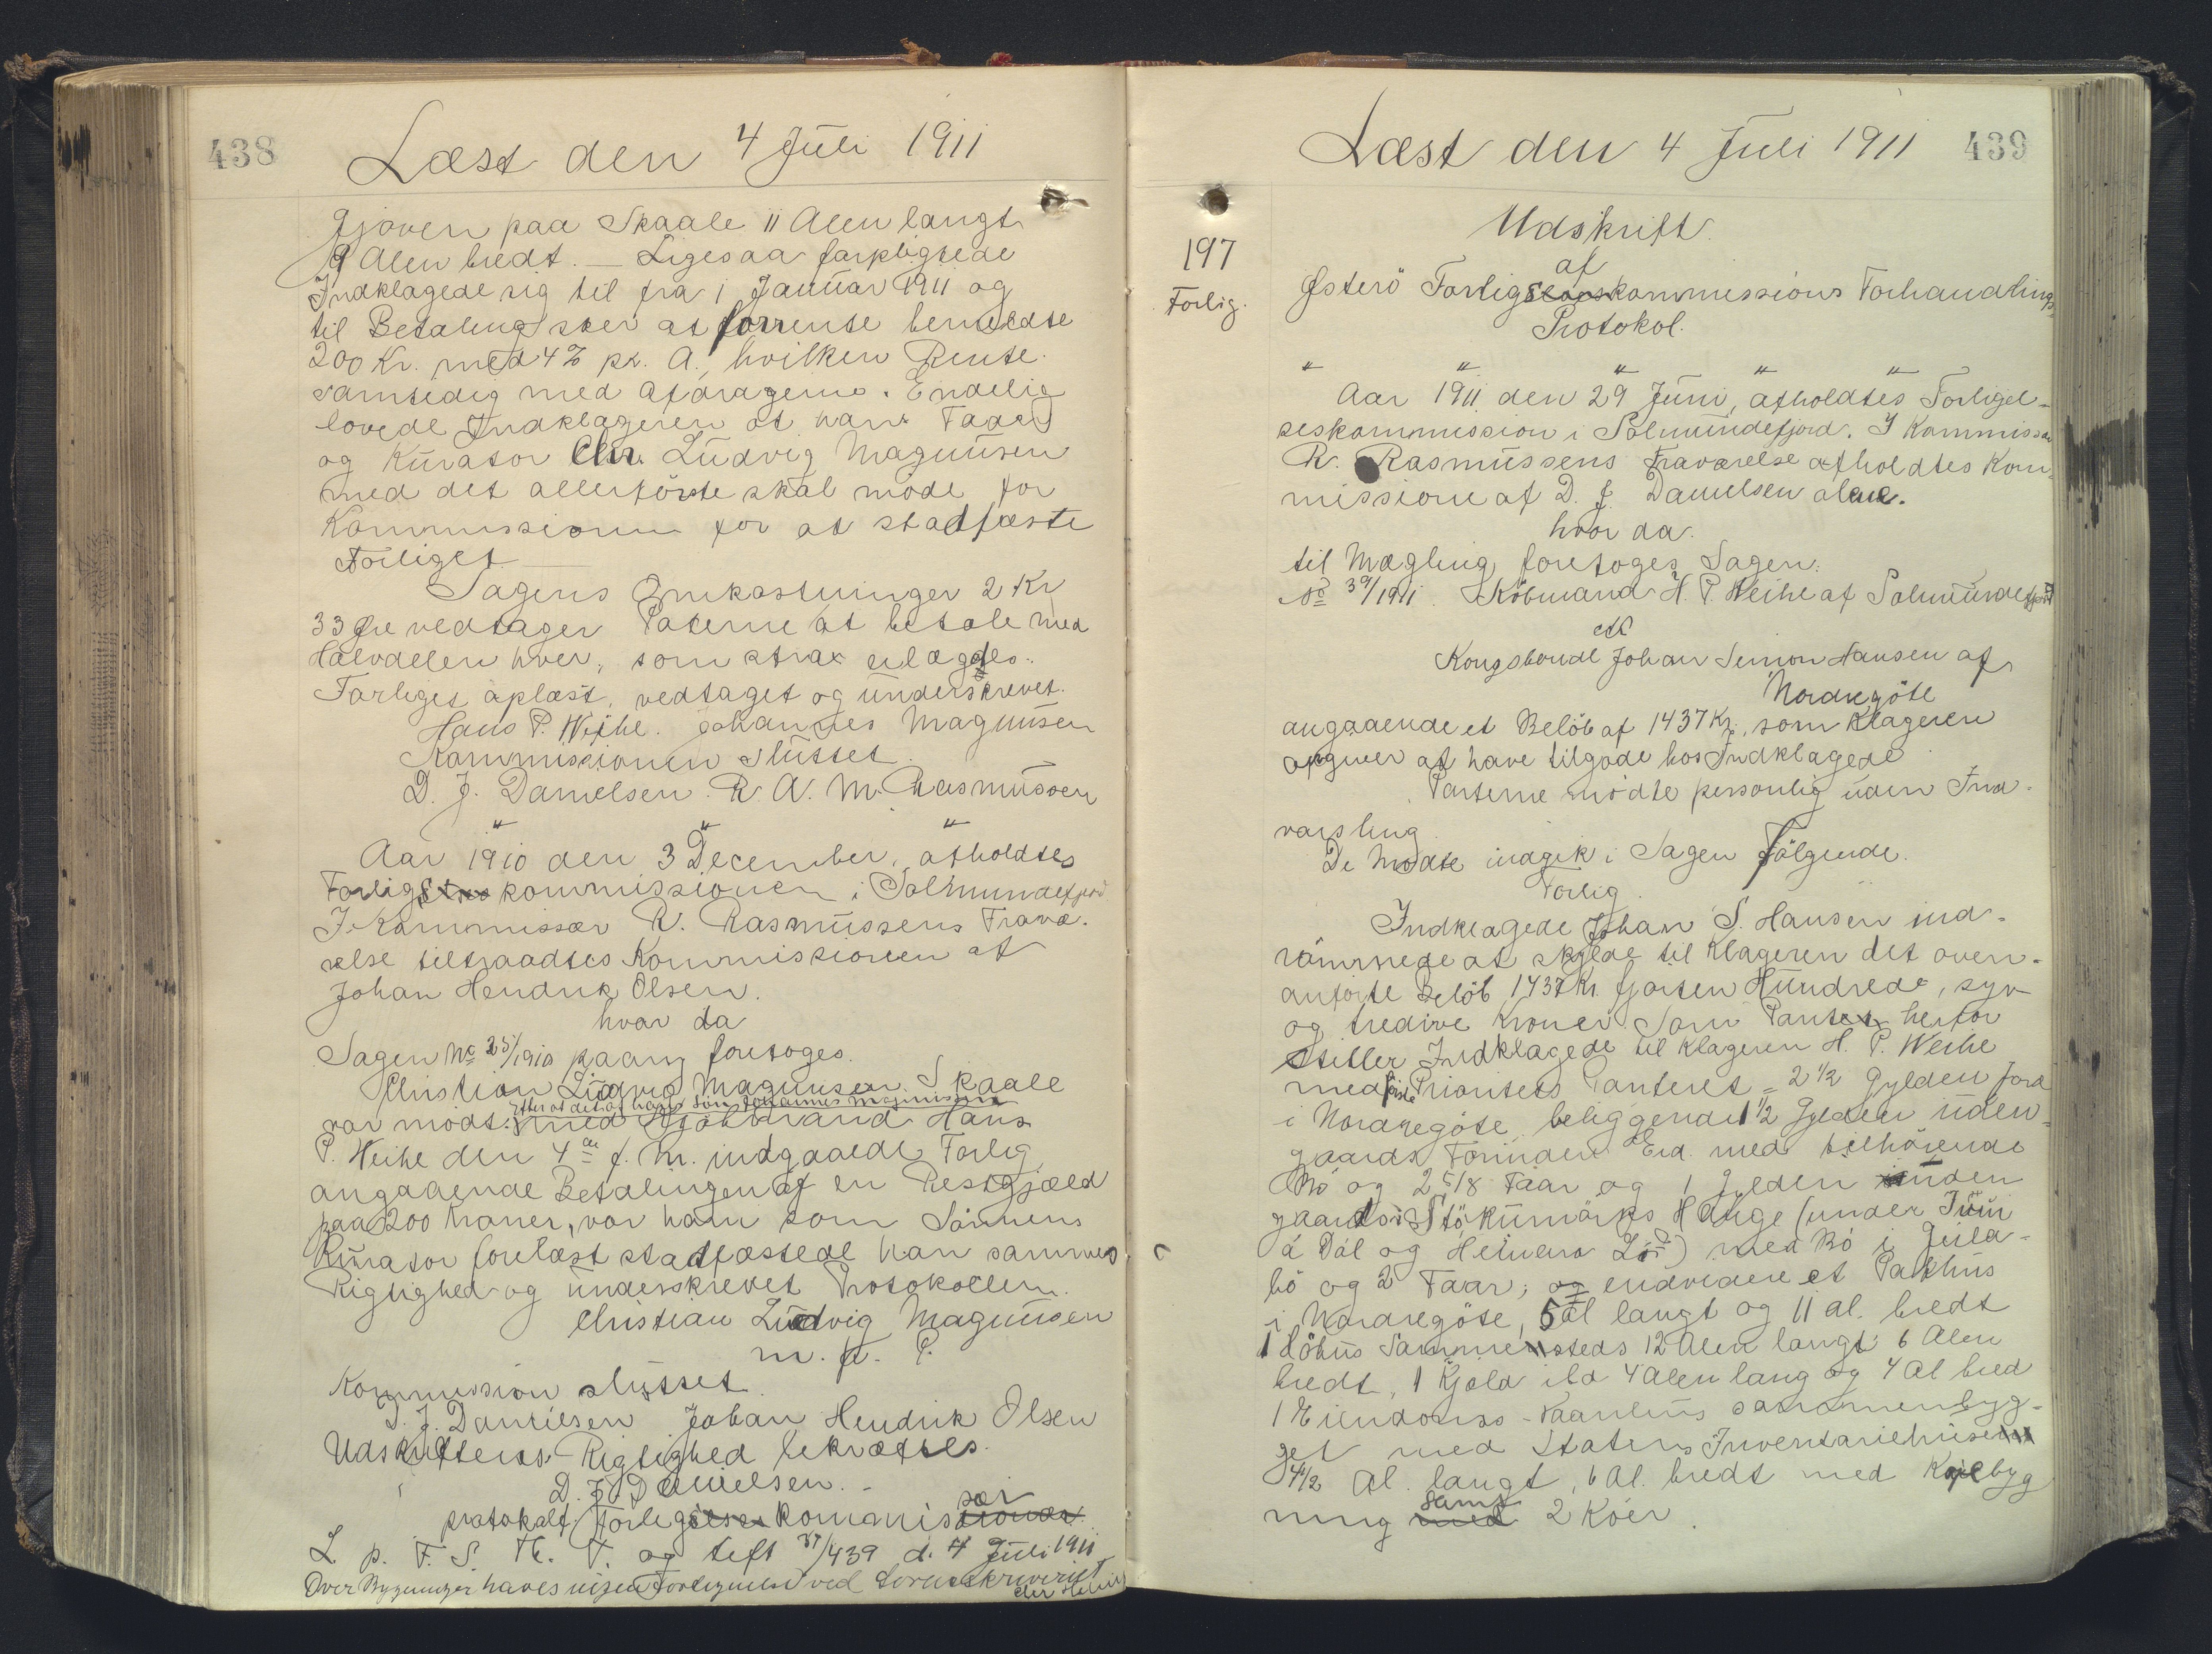 438
Læst den 4 Juli 1911
Gjoven paa Skaale 11 Alen langt
9 Alen bredt. — Ligesaa forpligtede
Indklagede sig til fra 1 Januar 1911 og
til Betaling sker at forrente bemeldte
200 Kr. med 4% pr. A., hvilken Rente
samtidig med Afdragene. Endelig
lovede Indklageren at hans Fader
og Kurator Chr. Ludvig Magnusen
med det allerförste skal möde for
Kommissionen for at stadfæste
Forliget —
Sagens Omkostninger 2 Kr
33 Øre vedtager Parterne at betale med
Halvdelen hver, som strax erlægges.
Forliget oplæst, vedtaget og underskrevet.
Hans P. Weihe. Johannes Magnusen
Kommissionen sluttet.
D. J. Danielsen. R. A. M. Rasmussen
" " "
Aar 1910 den 3 December, afholdtes
Forligskommissionen i Solmundefjord.
I Kommissær R. Rasmussens Fravæ-
relse tiltraadtes Kommissionen af
Johan Hendrik Olsen.
hvor da
Sagen No 25/1910 paany foretoges.
Christian Ludvig Magnusen Skaale
Efter at det af hans Sön Johannes Magnusen
var mödt. med Kjöbmand Hans
P. Weihe den 4de f. M. indgaaede Forlig
angaaende Betalingen af en Restgjæld
paa 200 Kroner, var ham som Sönnens
Kurator forelæst stadfæstede han sammes
Rigtighed og underskrevet Protokollen.
Christian Ludvig Magnusen
m. f. P.
Kommission sluttet.
D. J. Danielsen Johan Hendrik Olsen
Udskriftens Rigtighed bekræftes.
D. J. Danielsen.
sær
protokolf. Forligelses Kommissionær
L. p. F. S. Th. V. og tift 37/439 d. 4 Juli 1911
Over Bygninger haves ingen Fortegnelse ved Sorenskriveriet
439
Læst den 4 Juli 1911
197
Forlig.
Udskrift
af
Østerö Forligskommissions Forhandlings-
Protokol.
" " " " "
Aar 1911 den 29 Juni, afholdtes Forligel-
seskommission i Solmundefjord. I Kommissær
R. Rasmussens Fraværelse afholdtes Kom-
missionen af D. J. Danielsen alene.
hvor da.
til Mægling foretoges Sagen:
No 39/1911. Köbmand H. P. Weihe af Solmundefjord
ctr
Kongsbonde Johan Simon Hansen af
Nordregöte
angaaende et Belöb af 1437 Kr., som Klageren
angiver at have tilgode hos Indklagede
Parterne mödte personlig uden Ind-
varsling
De Mödte indgik i Sagen fölgende.
Forlig.
Indklagede Johan S. Hansen ind-
römmede at skylde til Klageren det oven-
anförte Belöb 1437 Kr. fjorten Hundrede, syv
og tredive Kroner. Som Pant herfor
stiller Indklagede til Klageren H. P. Weihe
med förste Prioritets Panteret = 2 1/2 Gylden Jord
i Nordregöte beliggende 1 1/2 Gylden uden-
gaards Forinden Eid. med tilhörende
Bö og 2 5/8 Faar og 1 Gylden inden
gaards i Stökumörks Hauge (under Tum
á Dál og Heluna Lö) med Bö i Jula-
bö og 2 Faar; og endvidere et Pakhus
i Nordregöte, 5 al langt og 11 al. bredt
1 Höhus Sammensteds 12 Alen langt 6 Alen
bredt, 1 Kjæld ild 4 Alen lang og 4 Al bred
1 Eiendoms-Vaanhus sammenbyg-
get med Statens Inventariehuse
4 1/2 Al. langt, 6 Al. bredt med Kjelbyg
samt
ning med 2 Köer.